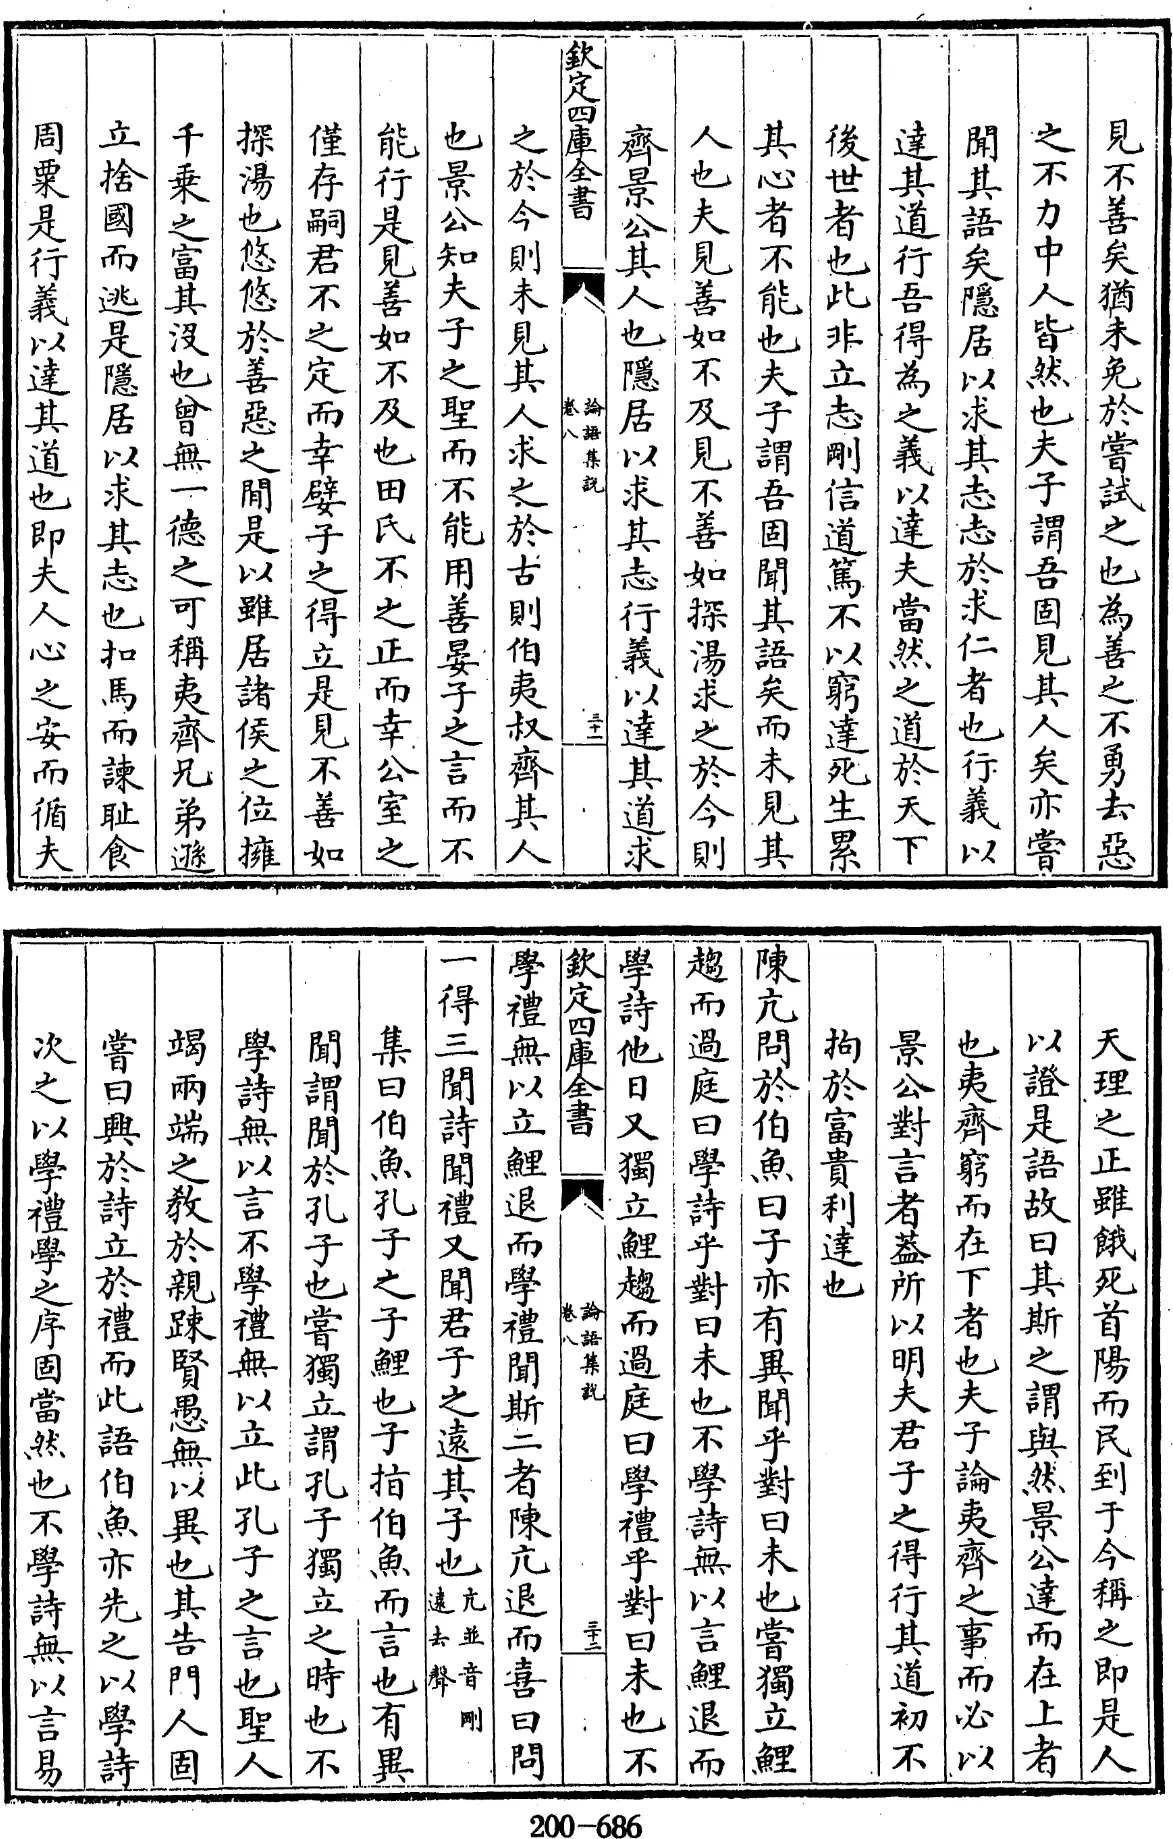 見不善矣猶未免於嘗試之也為善之不勇去惡
之不力中人皆然也夫子謂吾固見其人矣亦嘗
聞其語矣隱居以求其志志於求仁者也行義以
達其道行吾得為之義以達夫當然之道於天下
後世者也此非立志剛信道篤不以窮達死生累
其心者不能也夫子謂吾固聞其語矣而未見其
人也夫見善如不及見不善如探湯求之於今則
齊景公其人也隱居以求其志行義以達其道求
欽定四庫全書
論語集說
卷八
三十一
之於今則未見其人求之於古則伯夷叔齊其人
也景公知夫子之聖而不能用善晏子之言而不
能行是見善如不及也田氏不之正而幸公室之
僅存嗣君不之定而幸嬖子之得立是見不善如
探湯也悠悠於善惡之閒是以雖居諸侯之位擁
千乗之富其沒也曾無一德之可稱夷齊兄弟遜
立捨國而逃是隱居以求其志也扣馬而諫耻食
周粟是行義以達其道也即夫人心之安而循夫
天理之正雖餓死首陽而民到于今稱之即是人
以證是語故曰其斯之謂與然景公達而在上者
也夷齊窮而在下者也夫子論夷齊之事而必以
景公對言者葢所以明夫君子之得行其道初不
拘於富貴利達也
陳亢問於伯魚曰子亦有異聞乎對曰未也嘗獨立鯉
趨而過庭曰學詩乎對曰未也不學詩無以言鯉退而
學詩他日又獨立鯉趨而過庭曰學禮乎對曰未也不
欽定四庫全書
論語集說
卷八
三十二
學禮無以立鯉退而學禮聞斯二者陳亢退而喜曰問
一得三聞詩聞禮又聞君子之遠其子也亢並音剛遠去聲
集曰伯魚孔子之子鯉也子指伯魚而言也有異
聞謂聞於孔子也嘗獨立謂孔子獨立之時也不
學詩無以言不學禮無以立此孔子之言也聖人
竭兩端之教於親踈賢愚無以異也其告門人固
嘗曰興於詩立於禮而此語伯魚亦先之以學詩
次之以學禮學之序固當然也不學詩無以言易
200-686